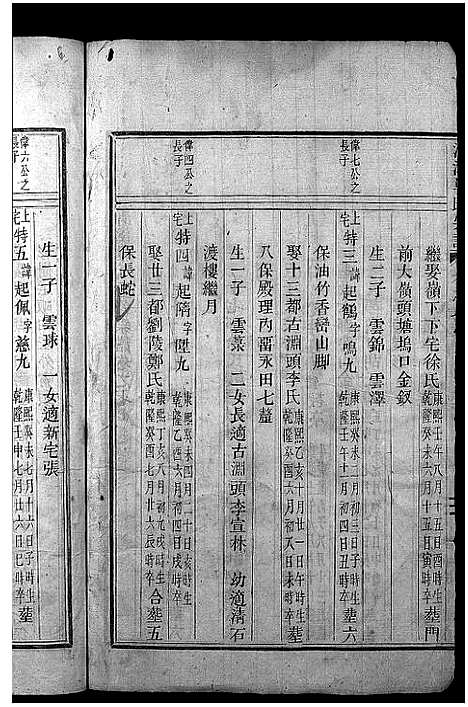 繼娶嶺下下宅徐氏康熙壬午八月十五日酉時生乾隆癸未六月十五日寅時卒塟門
前大嶺頭塘塢口金釵
生二子 雲錦 雲澤
偉七公之長子
上宅特三諱起鶴字鳴九康熙癸未二月初三日子時生乾隆壬午十一月初四日丑時卒塟六
保油竹香巒山脚
娶十三都古淵頭李氏 八月初一日午時生乾隆癸酉六月初八日未時卒塟
八保殿理丙 永田七釐
生一子 雲菜 二女長適古淵頭李宣林 幼適清石
渡樓繼月
偉四公之長子
上宅特四諱起隋字陞九康熙癸未四月二十日亥時生乾隆乙酉六月初四日戌時卒
娶廿三都劉陵鄭氏康熙丁亥八月初九戌時生乾隆癸酉七月廿六辰時卒合塟五
保長蛇
偉六公之長子
上宅特五諱起佩字慈九康熙癸未七月十六日子時生乾隆壬申七月廿六日巳時卒塟
生一子 雲球 一女適新宅張